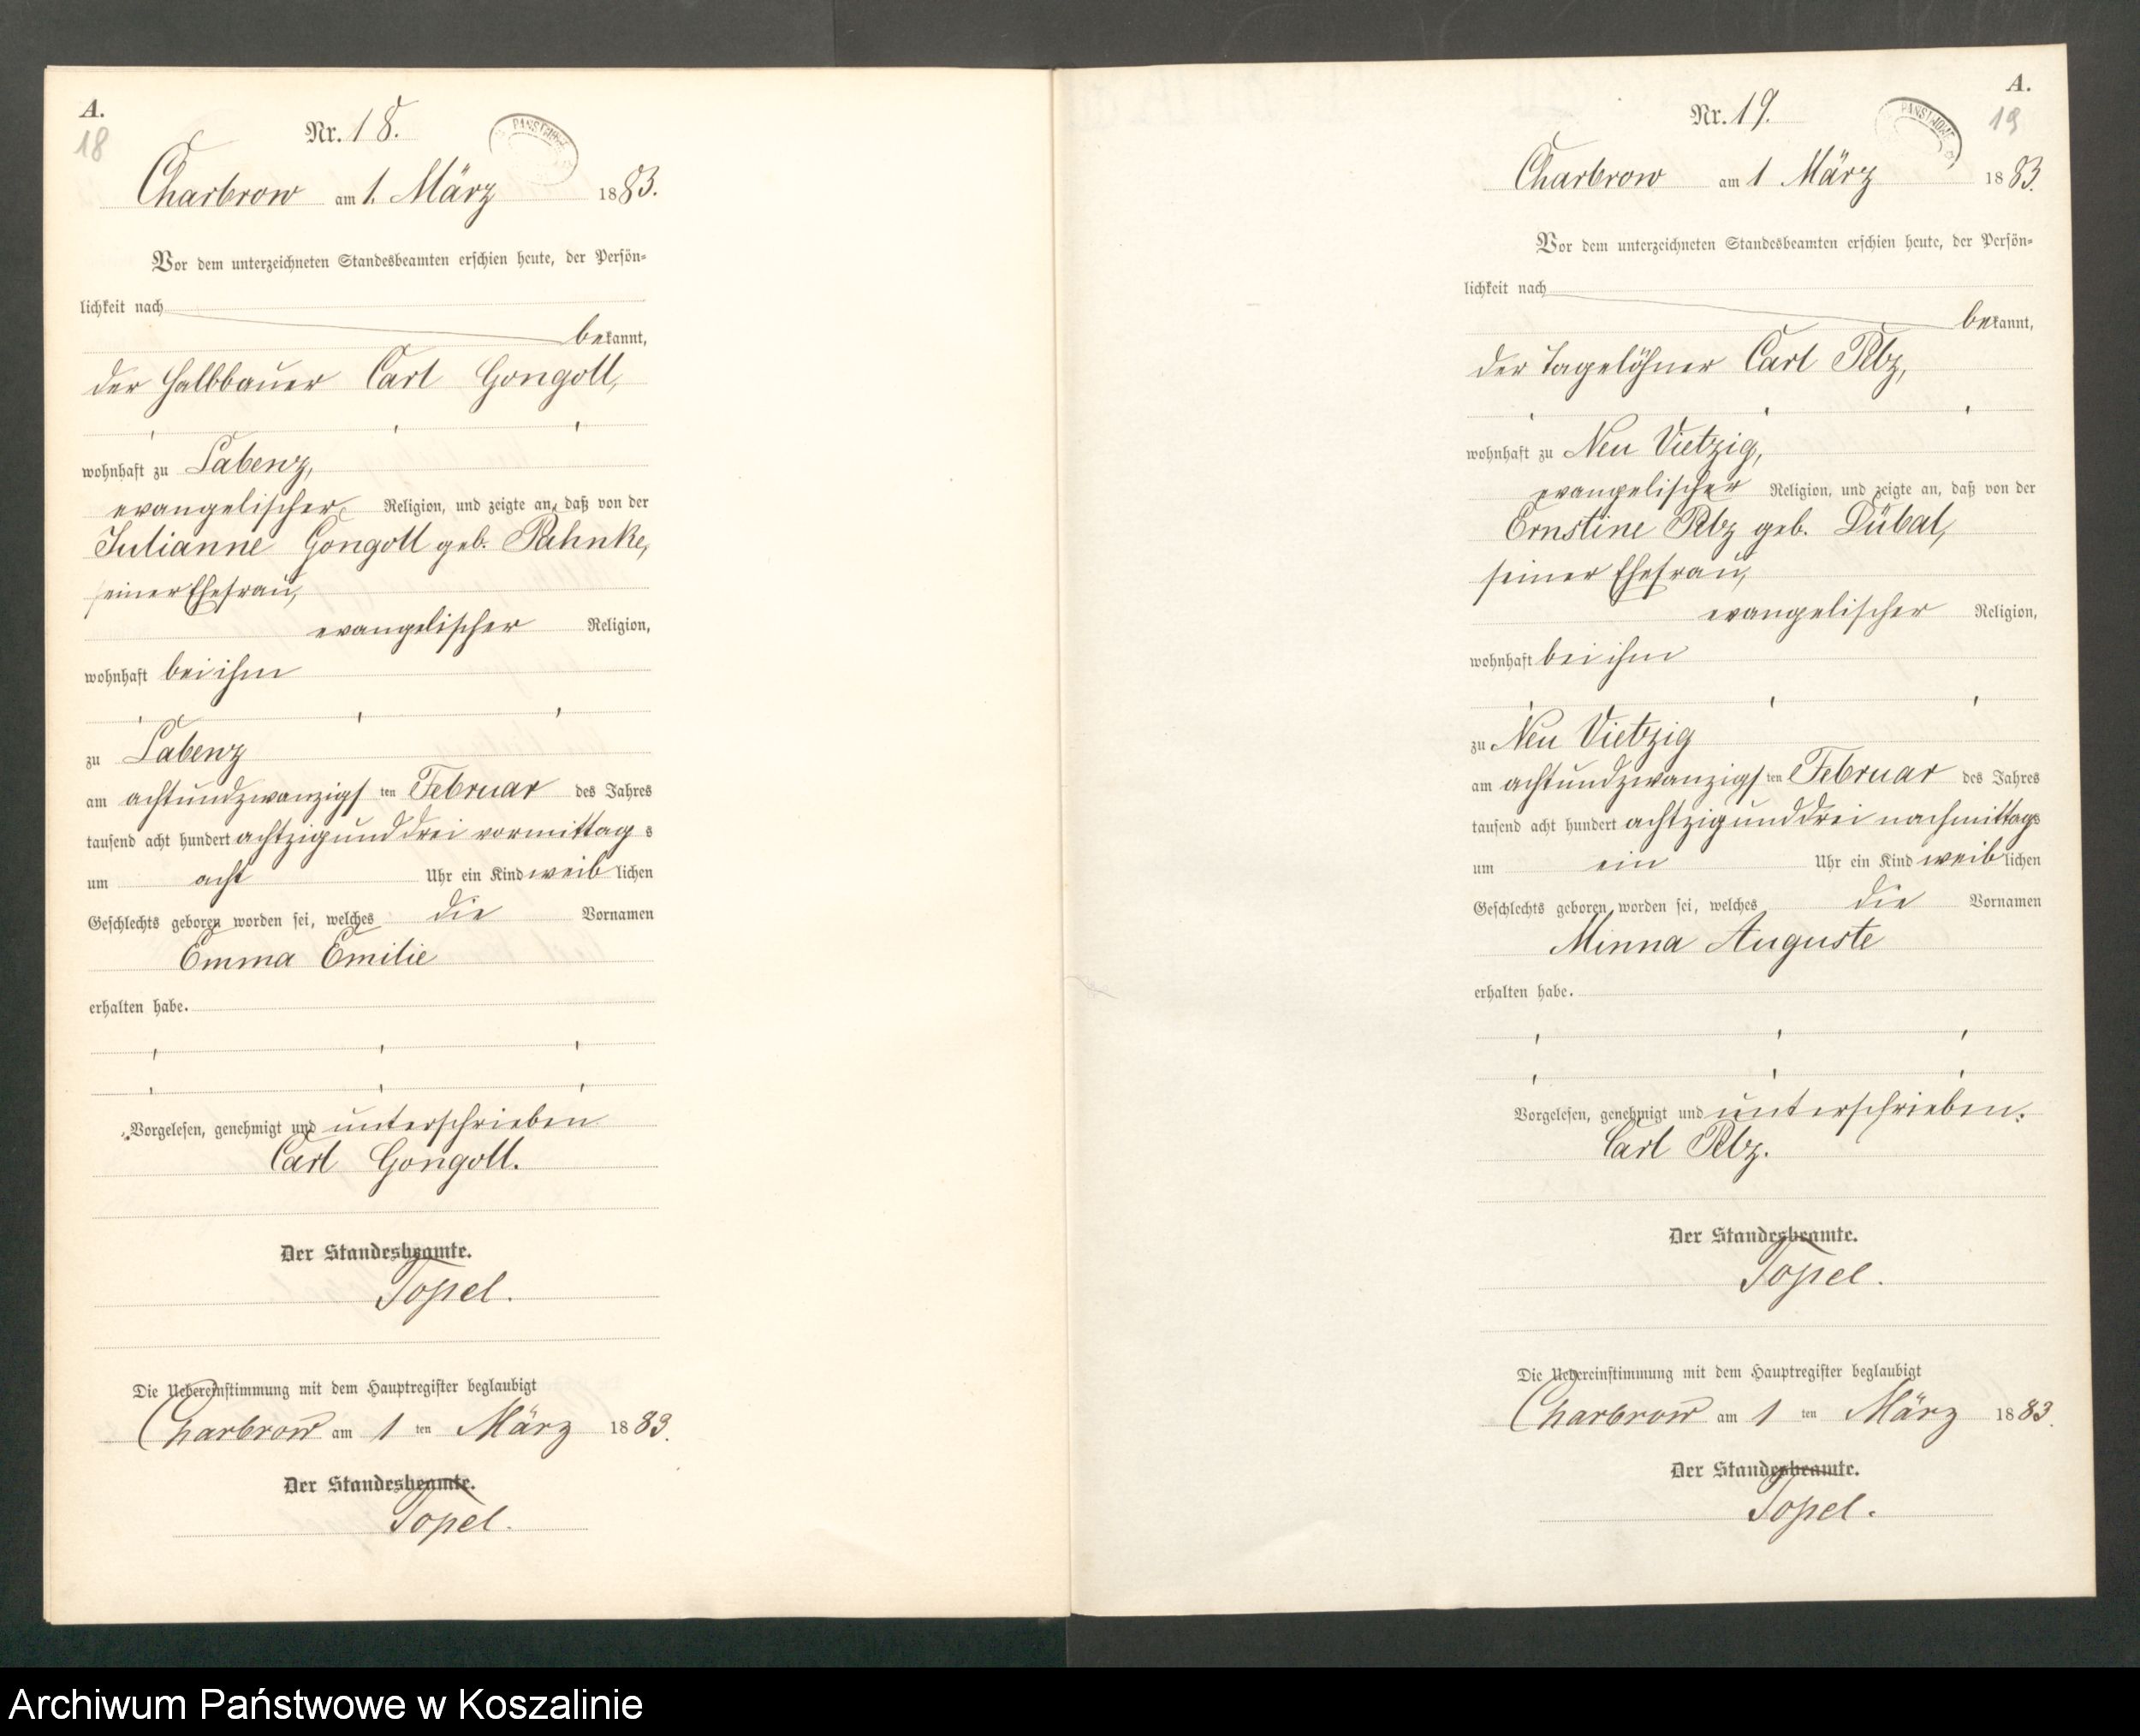 A.
18
Nr. 18.
Charbrow am 1. März 1883.
Vor dem unterzeichneten Standesbeamten erschien heute, der Persön-
lichkeit nach
bekannt,
der Halbbauer Carl Gongoll,
wohnhaft zu Labenz,
evangelischer Religion, und zeigte an, daß von der
Julianne Gongoll geb. Rahnke,
seiner Ehefrau,
evangelischer Religion,
wohnhaft bei ihm
zu Labenz
am achtundzwanzigsten Februar des Jahres
tausend acht hundert achtzig und drei vormittags
um acht Uhr ein Kind weiblichen
Geschlechts geboren worden sei, welches die Vornamen
Emma Emilie
erhalten habe.
Vorgelesen, genehmigt und unterschrieben
Carl Gongoll.
Der Standesbeamte.
Topel.
Die Uebereinstimmung mit dem Hauptregister beglaubigt
Charbrow am 1 ten März 1883.
Der Standesbeamte.
Topel.
A.
19
Nr. 19.
PANSTWOWE
Charbrow am 1 März 1883.
Vor dem unterzeichneten Standesbeamten erschien heute, der Persön-
lichkeit nach
bekannt,
der Tagelöhner Carl
wohnhaft zu Neu Vietzig,
evangelischer Religion, und zeigte an, daß von der
Ernstine geb. Dübal,
seiner Ehefrau,
evangelischer Religion,
wohnhaft bei ihm
zu Neu Vietzig
am achtundzwanzigsten Februar des Jahres
tausend acht hundert achtzig und drei nachmittags
um ein Uhr ein Kind weiblichen
Geschlechts geboren worden sei, welches die Vornamen
Minna Auguste
erhalten habe.
Vorgelesen, genehmigt und unterschrieben.
Carl
Der Standesbeamte.
Topel.
Die Uebereinstimmung mit dem Hauptregister beglaubigt
Charbrow am 1 ten März 1883.
Der Standesbeamte.
Topel.
Archiwum Państwowe w Koszalinie